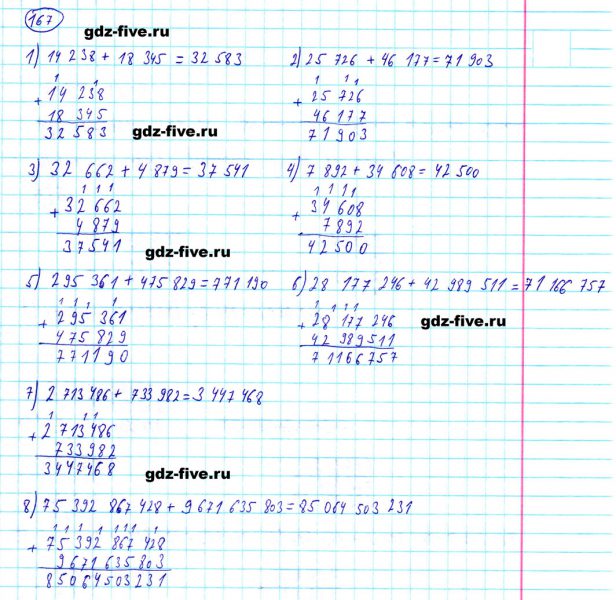 167
gdz-five.ru
1) 14 238 + 18 345 = 32 583
1 1
+ 14 238
18 345
32 583
gdz-five.ru
2) 25 726 + 46 177 = 71 903
1 1 1
+ 25 726
46 177
71903
3) 32 662 + 4 879 = 37 541
1 1 1
+ 32 662
4 879
37541
gdz-five.ru
4) 7 892 + 34 608 = 42 500
1 1 1 1
+ 34 608
7 892
42500
5) 295 361 + 475 829 = 771 190
1 1 1 1
+ 295 361
475 829
771190
6) 28 177 246 + 42 989 511 = 71 166 757
1 1 1 1
+ 28 177 246
42 989511
71166757
gdz-five.ru
7) 2 713 486 + 733 982 = 3 447 468
1 1 1
+ 2 713 486
733 982
3447468
gdz-five.ru
8) 75 392 867 428 + 9 671 635 803 = 85 064 503 231
1 1 1 1 1 1 1 1
+ 75 392 867 428
9671635803
85064503231